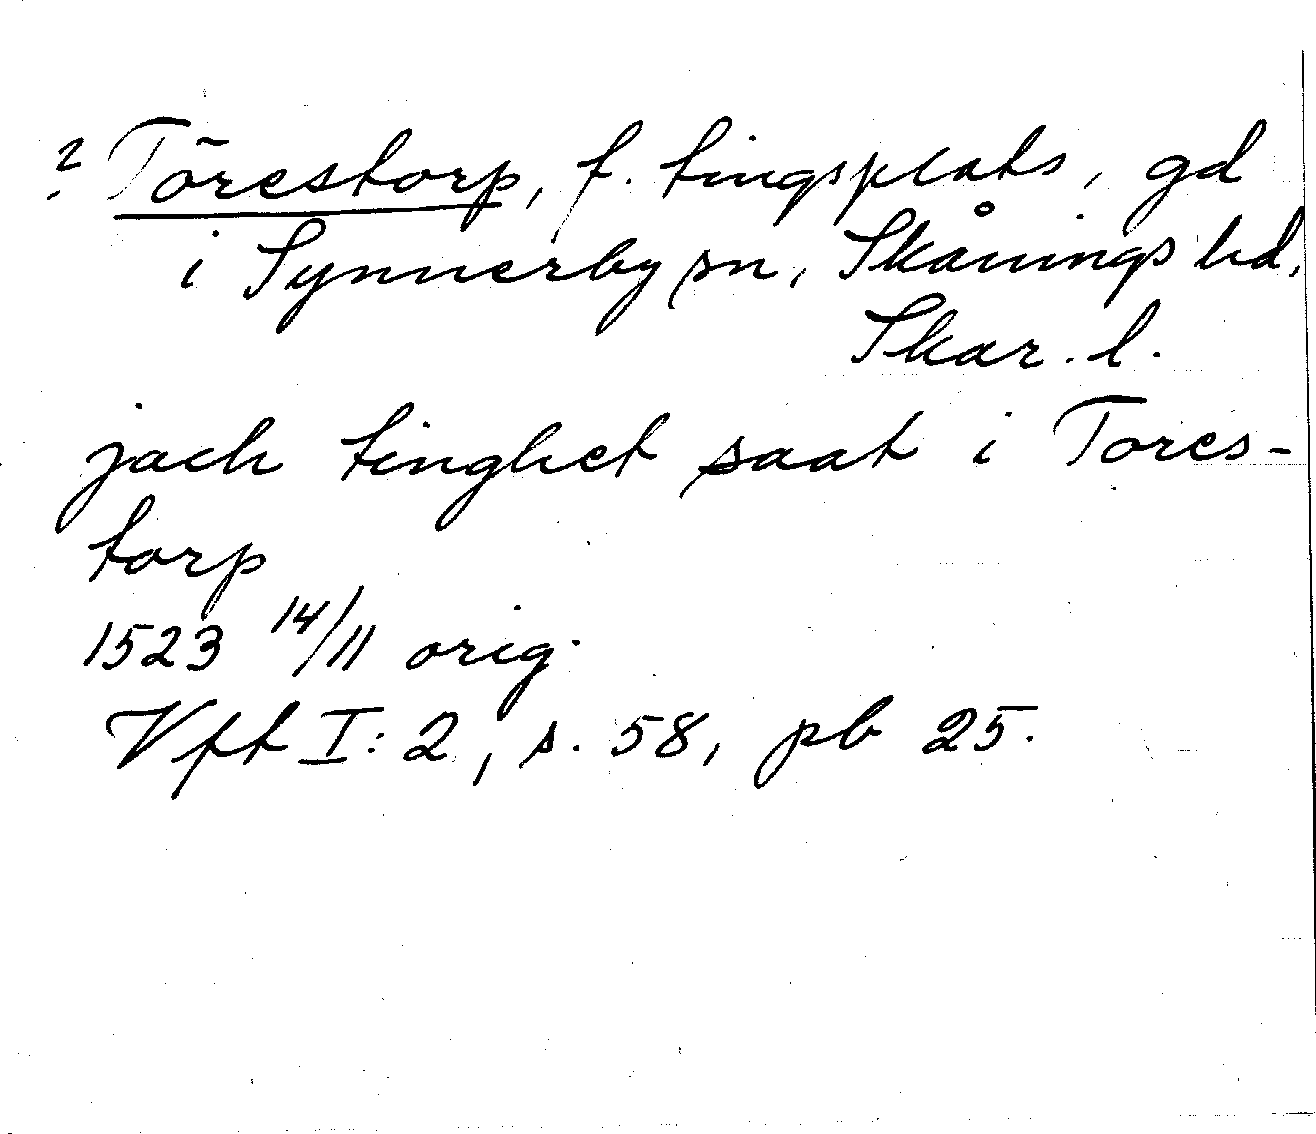 ? Törestorp, f. tingsplats, gd
i Synnerby sn, Skånings hd,
Skar. l.
jach tinghet saat i Tores-
torp
1523 14/11 orig.
Vft I:2, s. 58, pb 25.